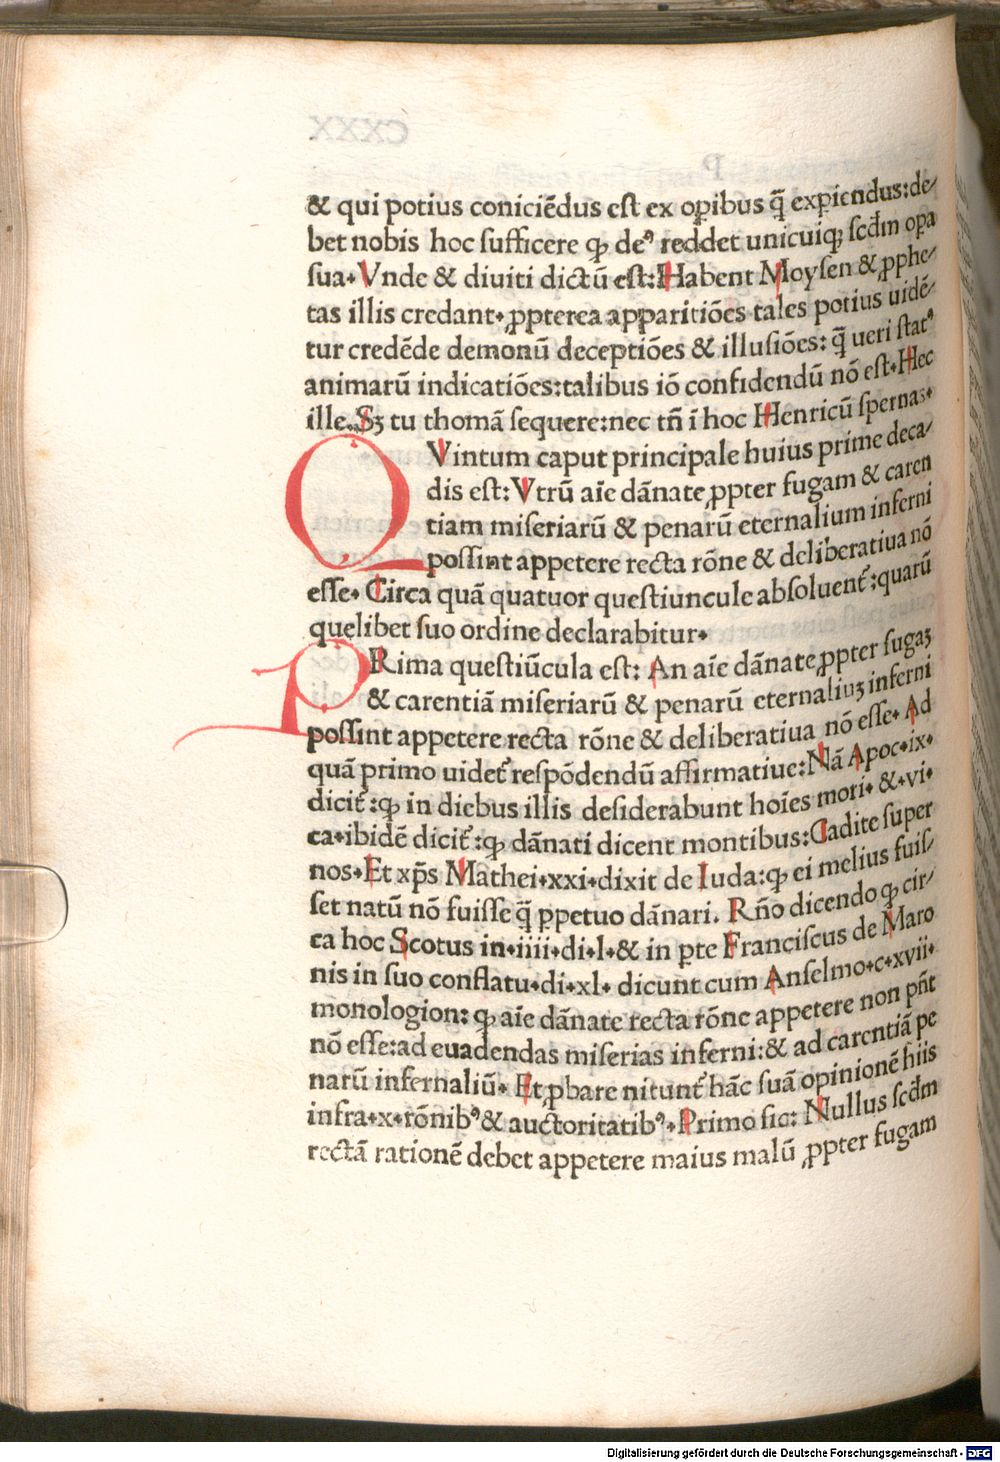 & qui potius coniciēdus est ex op̄ibus q̄ꝫ exp̄iendus: de⸗
bet nobis hoc sufficere ꝙ deꝰ reddet unicuiqꝫ scd̄m op̄a
sua. Vnde & diuiti dictū est: Habent Moysen & ꝓphe⸗
tas illis credant. ꝓpterea apparitiōes tales potius uidē⸗
tur credēde demonū deceptiōes & illusiōes: q̄ꝫ ueri statꝰ
animarū indicatiōes: talibus iō confidendū nō est. Hec
ille. Sꝫ tu thomā sequere: nec tn̄ ī hoc Henricū spernas.
QVintum caput principale huius prime deca⸗
dis est: Vtrū aīe dānate ꝓpter fugam & caren
tiam miseriarū & penarū eternalium inferni
possint appetere recta rōne & deliberatiua nō
esse. Circa quā quatuor questiuncule absoluent᷑: quarū
quelibet suo ordine declarabitur.
PRima questiūcula est: An aīe dānate ꝓpter fugaꝫ
& carentiā miseriarū & penarū eternaliuꝫ inferni
possint appetere recta rōne & deliberatiua nō esse. Ad
quā primo uidet᷑ respōdendū affirmatiue: Nā Apoc. ix.
dicit᷑: ꝙ in diebus illis desiderabunt hoīes mori. &. vi.
ca. ibidē dicit᷑: ꝙ dānati dicent montibus: Cadite super
nos. Et xp̄s Mathei. xxi. dixit de Iuda: ꝙ ei melius fuis⸗
set natū nō fuisse q̄ꝫ ꝑpetuo dānari. Rn̄o dicendo ꝙ cir⸗
ca hoc Scotus in. iiii. di. l. & in ꝑte Franciscus de Maro
nis in suo conflatu. di. xl. dicunt cum Anselmo. c. xvii.
monologion: ꝙ aīe dānate recta rōne appetere non pn̄t
nō esse: ad euadendas miserias inferni: & ad carentiā pe
narū infernaliū. Et ꝓbare nitunt᷑ hāc suā opinionē hiis
infra. x. rōnibꝰ & auctoritatibꝰ. Primo sic: Nullus scd̄m
rectā rationē debet appetere maius malū ꝓpter fugam
Digitalisierung gefördert durch die Deutsche Forschungsgemeinschaft - DFG